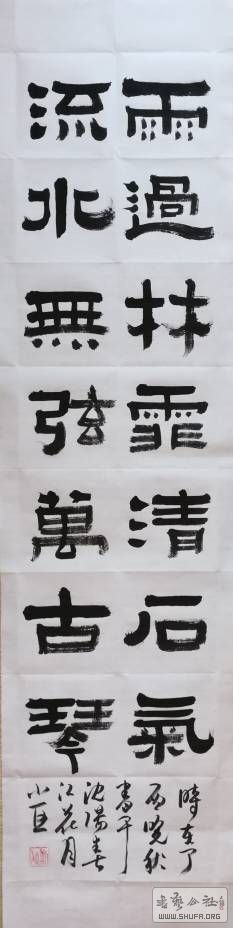 雨過林霏清石氣
流水無弦萬古琴
時在丁
酉晚秋
書于
沈陽春
江花月
小
書藝公社
WWW.SHUFA.ORG